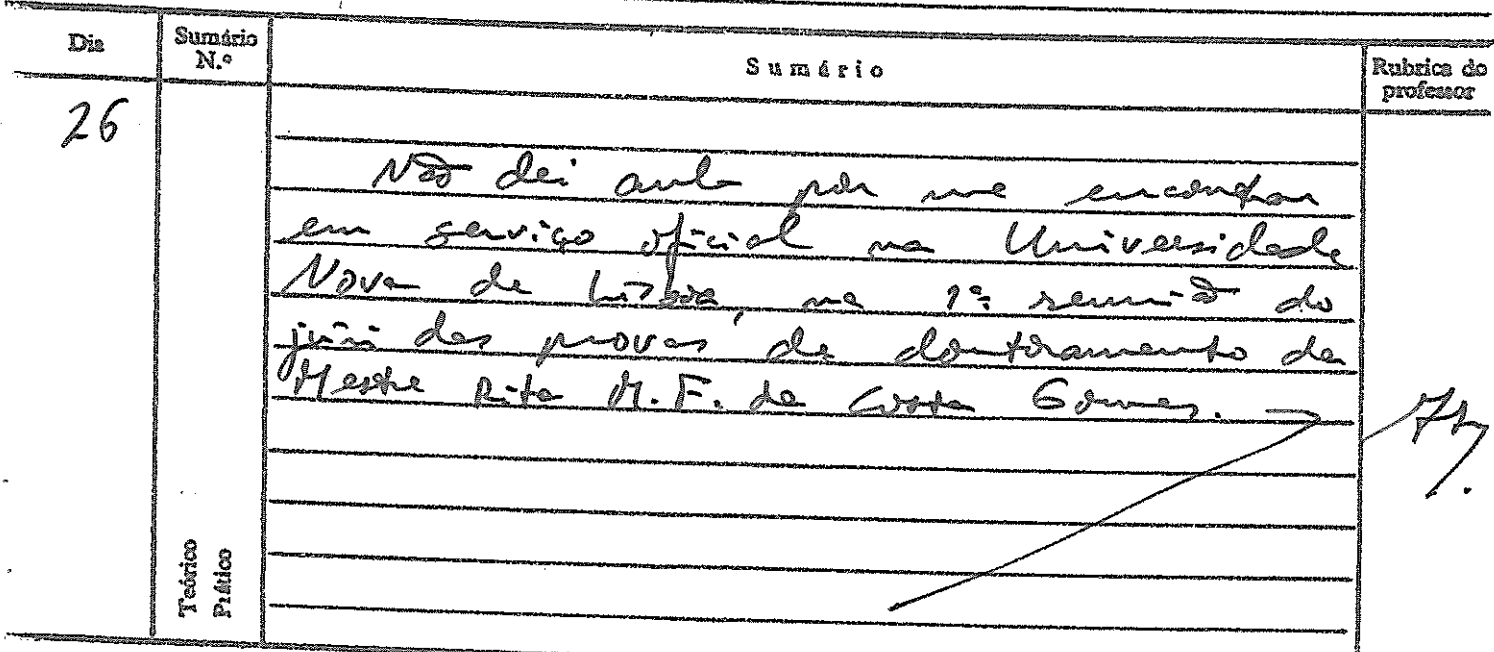 Dia
Sumário N.º
Sumário
Rubrica do professor
26
Não dei aula por me encontrar
em serviço oficial na Universidade
Nova de Lisboa, na 1ª reunião do
júri das provas de doutoramento da
Mestre Rita M. F. da Costa Gomes.
Teórico
Prático